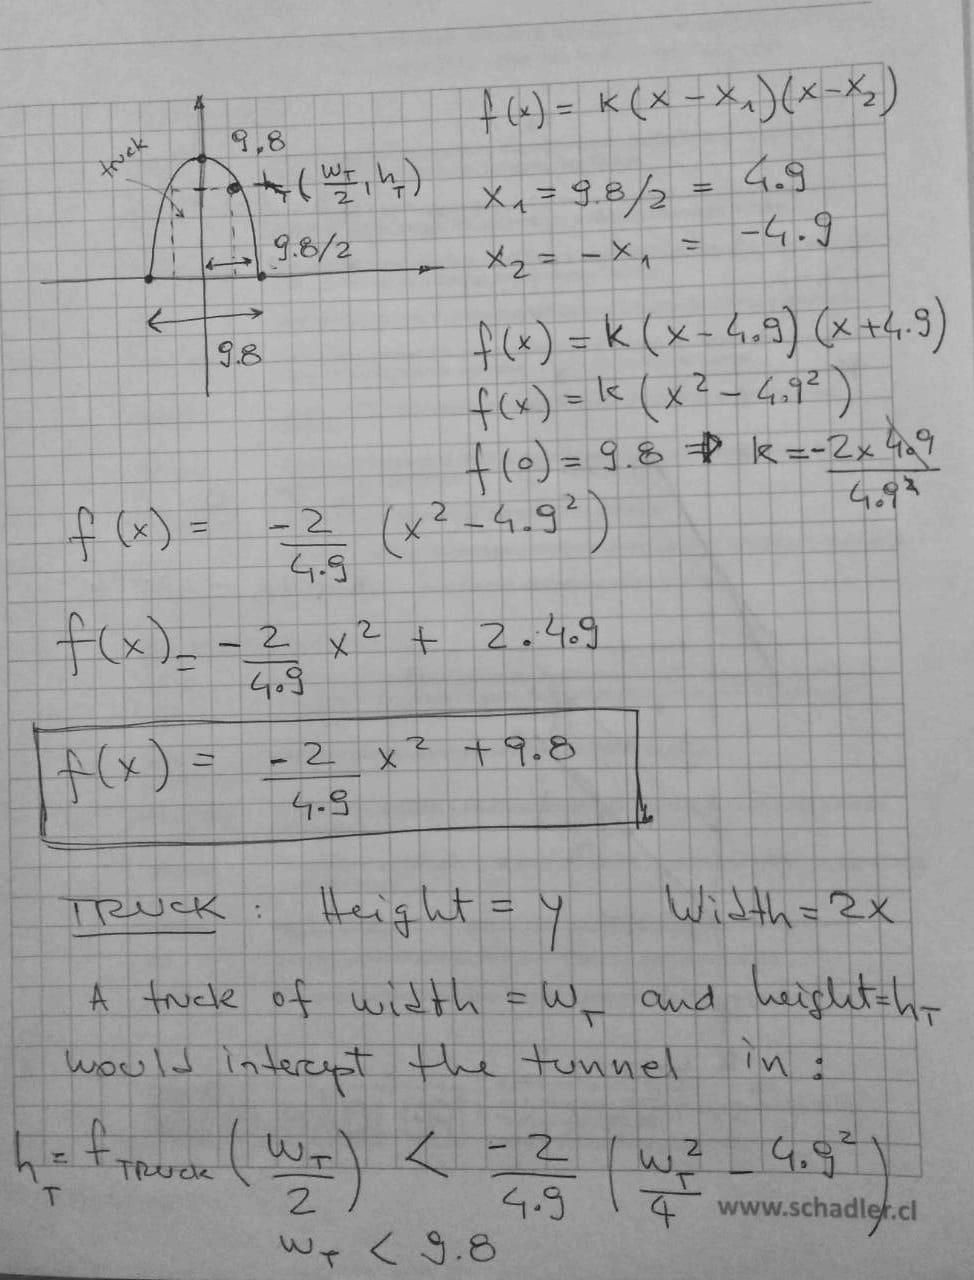 f(x) = k(x - x₁)(x - x₂)
9.8
truck
(w_T/2, h_T)
x₁ = 9.8/2 = 4.9
9.8/2
x₂ = -x₁ = -4.9
9.8
f(x) = k(x - 4.9)(x + 4.9)
f(x) = k(x² - 4.9²)
f(0) = 9.8 ⇒ k = -2 x 4.9 / 4.9²
f(x) = -2/4.9 (x² - 4.9²)
f(x) = -2/4.9 x² + 2 . 4.9
f(x) = -2/4.9 x² + 9.8
TRUCK : Height = y Width = 2x
A truck of width = w_T and height = h_T
would intercept the tunnel in :
h_T = f_TRUCK (w_T/2) < -2/4.9 (w_T²/4 - 4.9²)
www.schadler.cl
w_T < 9.8